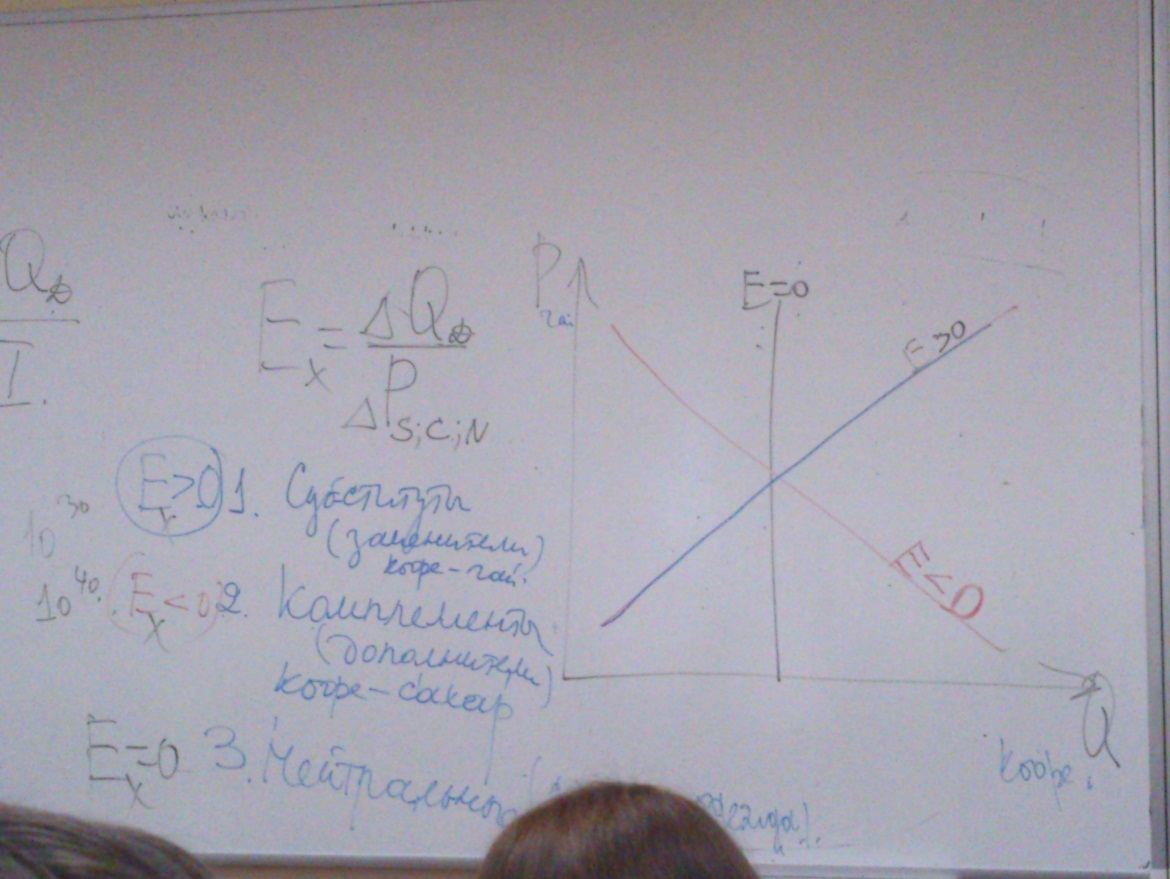 Q
I.
E_x = ΔQ_D
ΔP_S;C;N
E_x>0 1. Субституты
(заменители)
кофе-чай.
10^30
10^40. E_x<0 2. Комплементы
(дополнители)
кофе-сахар
E_x=0 3. Нейтральные
P
чай
E=0
E>0
E<0
Q
кофе.